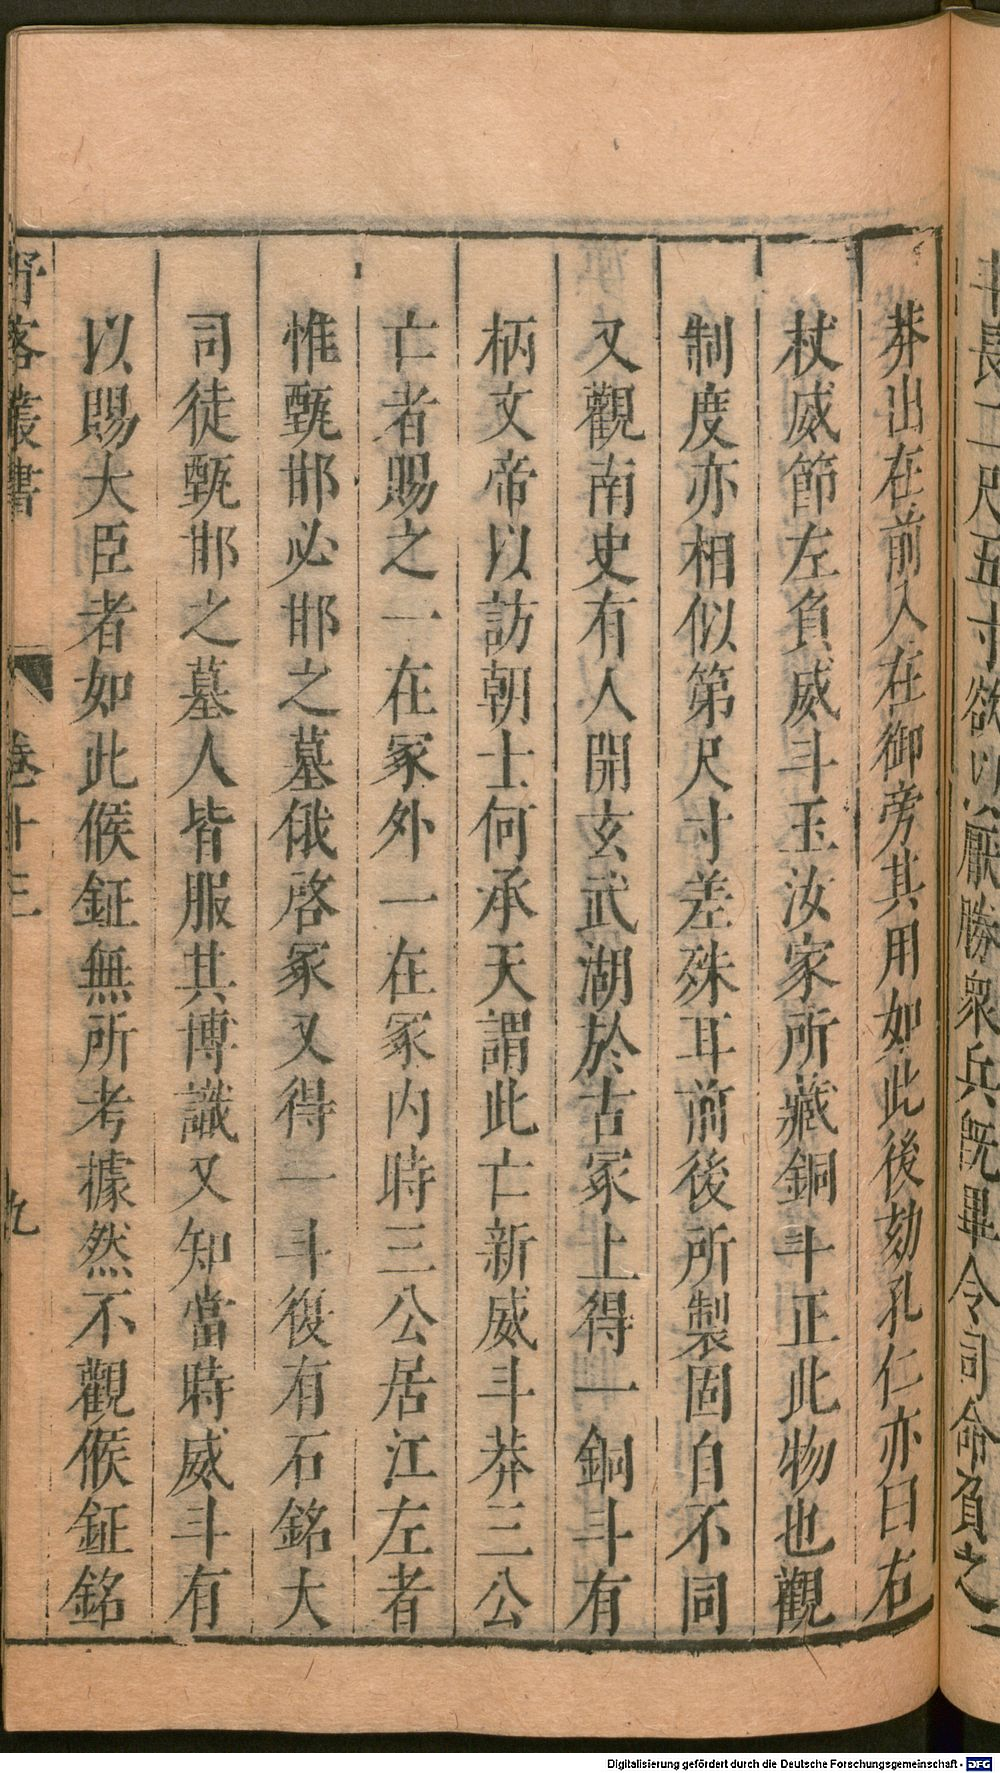 長二尺五寸欲以厭勝衆兵旣畢令司命負之
莽出在前入在御旁其用如此後劾孔仁亦曰右
杖威節左負威斗玉汝家所藏銅斗正此物也觀
制度亦相似第尺寸差殊耳前後所製固自不同
又觀南史有人開玄武湖於古冢上得一銅斗有
柄文帝以訪朝士何承天謂此亡新威斗莽三公
亡者賜之一在冢外一在冢内時三公居江左者
惟甄邯必邯之墓俄啓冢又得一斗復有石銘大
司徒甄邯之墓人皆服其博識又知當時威斗有
以賜大臣者如此候鉦無所考據然不觀候鉦銘
野客叢書 卷十三 九
Digitalisierung gefördert durch die Deutsche Forschungsgemeinschaft - DFG